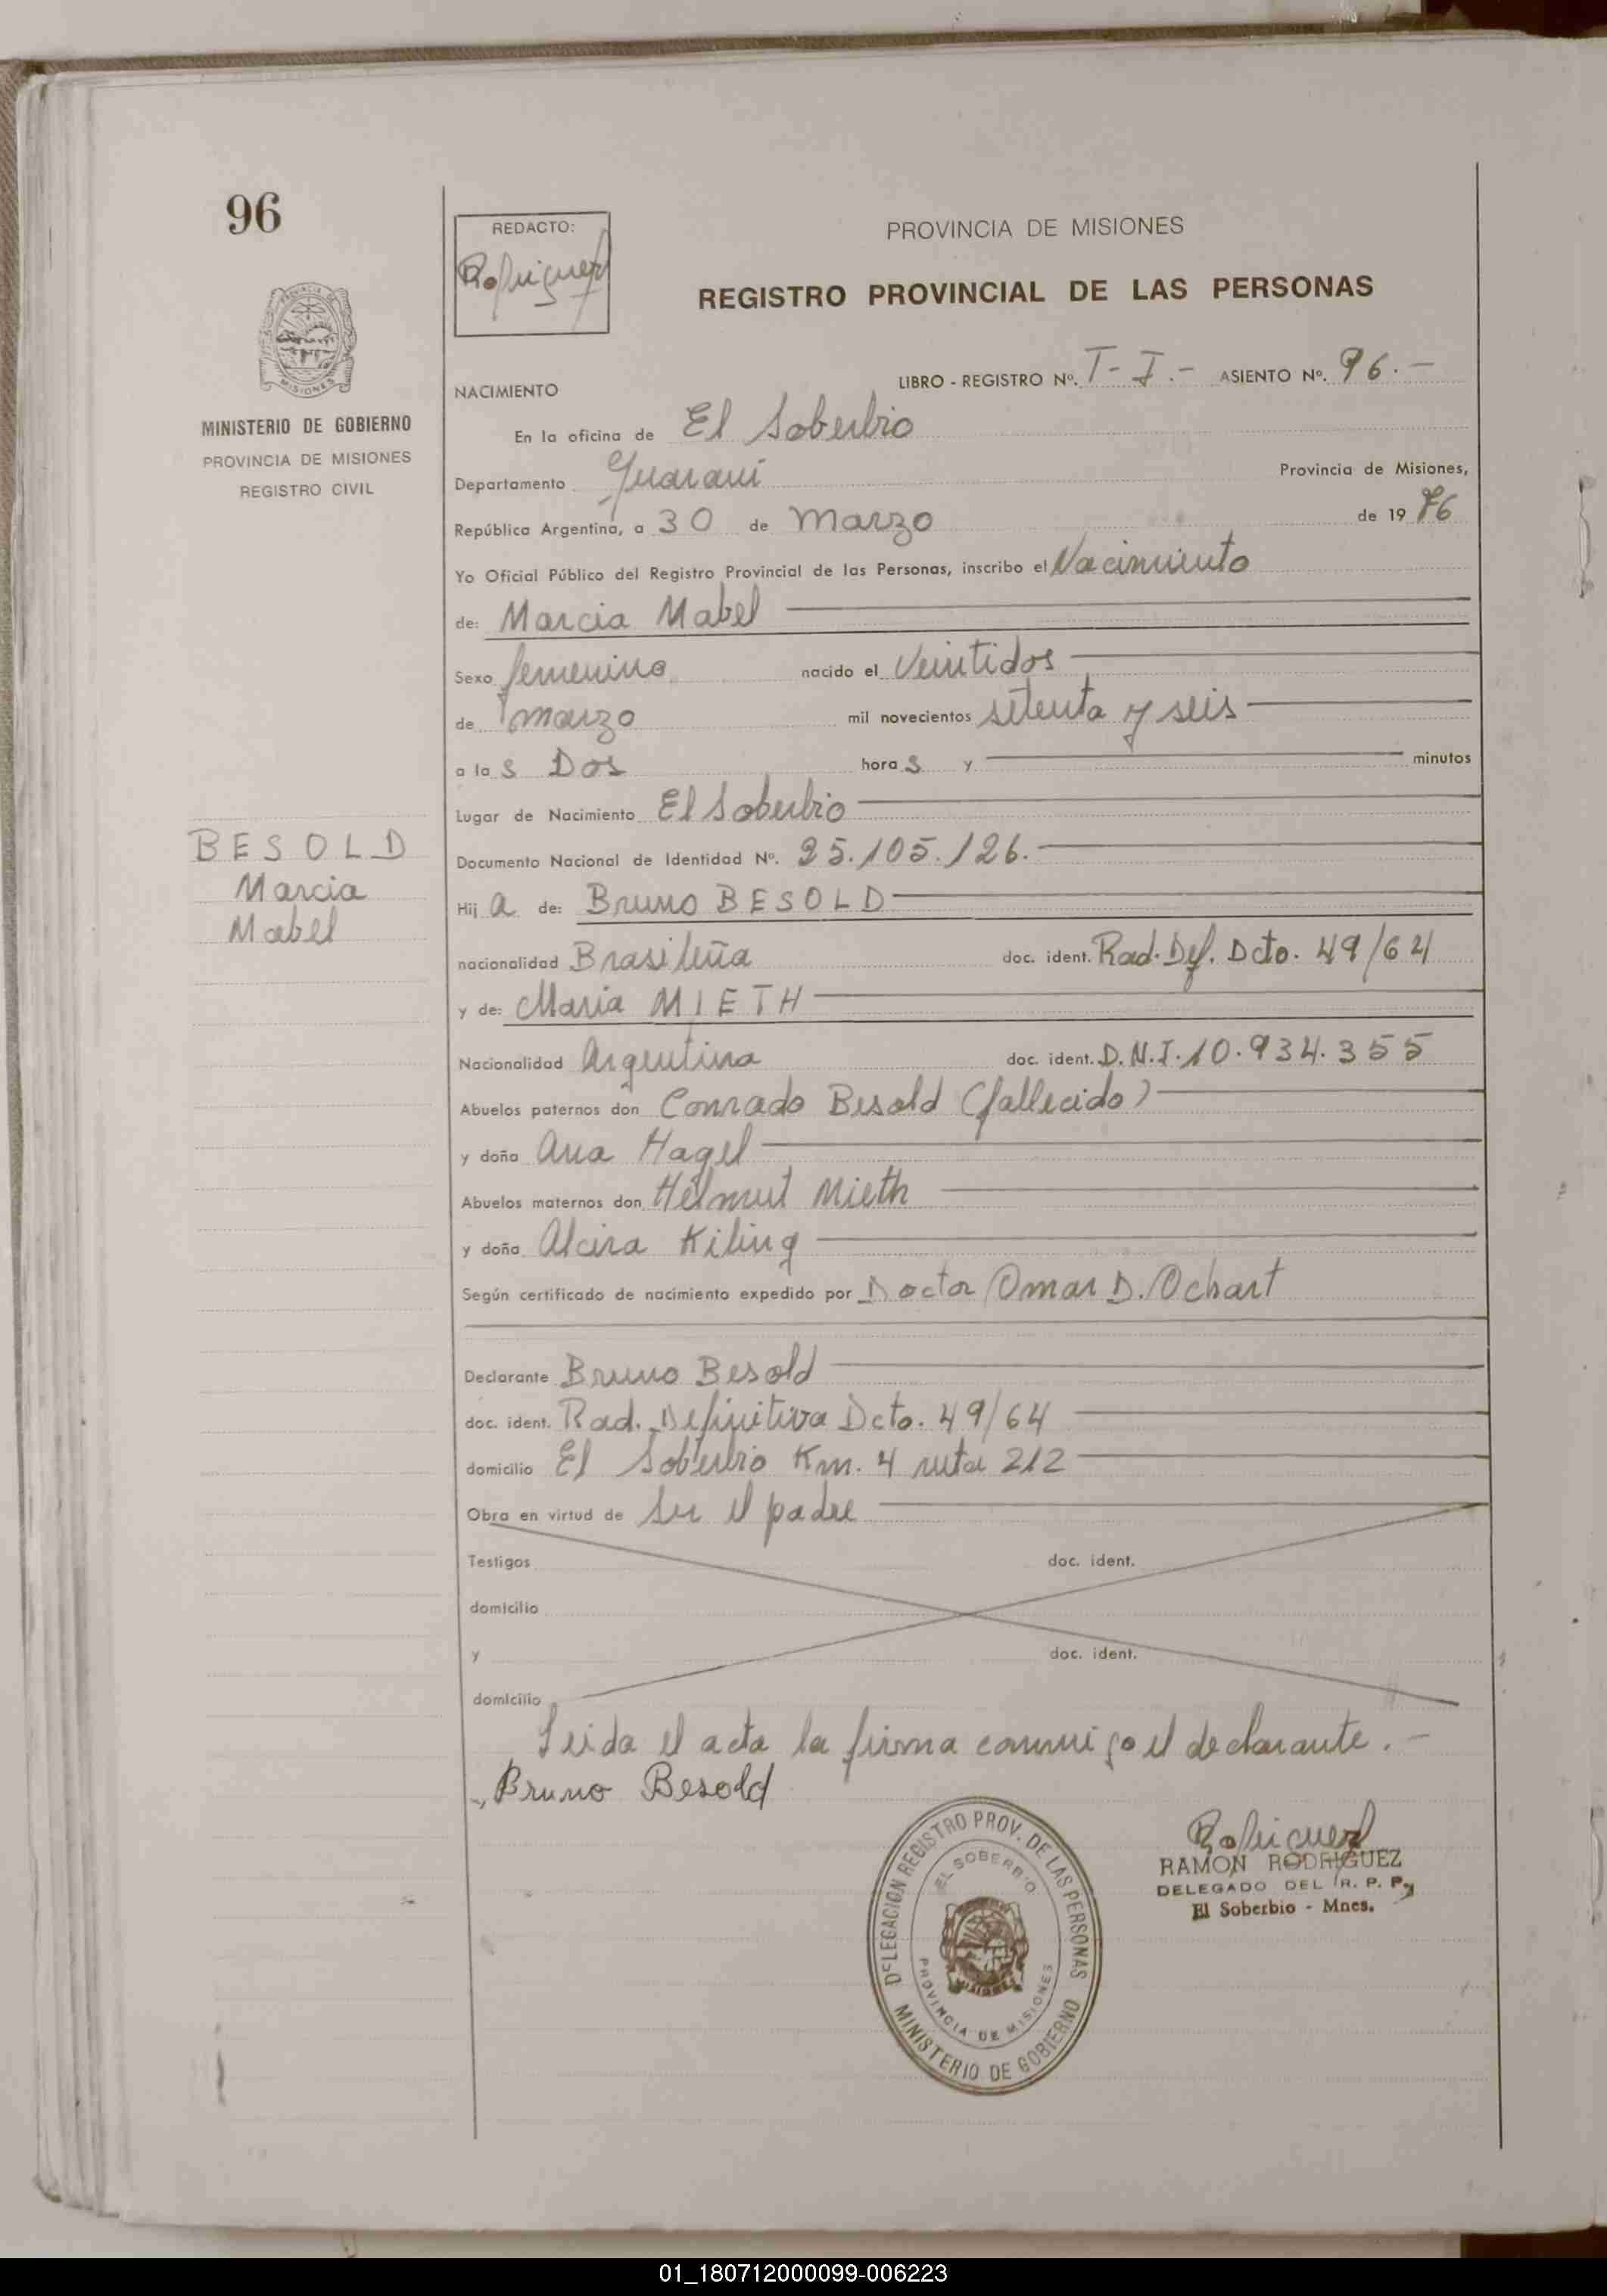 96
REDACTO:
Rodriguez
PROVINCIA DE MISIONES
REGISTRO PROVINCIAL DE LAS PERSONAS
MISIONES
MINISTERIO DE GOBIERNO
PROVINCIA DE MISIONES
REGISTRO CIVIL
NACIMIENTO
LIBRO - REGISTRO Nº. T-I.- ASIENTO Nº. 96.-
En la oficina de El Soberbio
Departamento Guaraní Provincia de Misiones,
República Argentina, a 30 de Marzo de 19 76
Yo Oficial Público del Registro Provincial de las Personas, inscribo el Nacimiento
de: Marcia Mabel
Sexo femenino nacido el Veintidos
de marzo mil novecientos setenta y seis
a la s Dos hora s y minutos
Lugar de Nacimiento El Soberbio
BESOLD
Marcia
Mabel
Documento Nacional de Identidad Nº. 25.105.126.
Hij a de: Bruno BESOLD
nacionalidad Brasileña doc. ident. Rad. Def. Dcto. 49/64
y de: Maria MIETH
Nacionalidad Argentina doc. ident. D.N.I. 10.934.355
Abuelos paternos don Conrado Besold (fallecido)
y doña Ana Hagel
Abuelos maternos don Helmut Mieth
y doña Alcira Kiling
Según certificado de nacimiento expedido por Doctor Omar D. Ochart
Declarante Bruno Besold
doc. ident. Rad. Definitiva Dcto. 49/64
domicilio El Soberbio Km. 4 ruta 212
Obra en virtud de ser el padre
Testigos doc. ident.
domicilio
y doc. ident.
domicilio
Leida el acta la firma conmigo el declarante.-
Bruno Besold
DELEGACION REGISTRO PROV. DE LAS PERSONAS
EL SOBERBIO
PROVINCIA DE MISIONES
MINISTERIO DE GOBIERNO
Rodriguez
RAMON RODRIGUEZ
DELEGADO DEL R. P. P.
El Soberbio - Mnes.
01_180712000099-006223